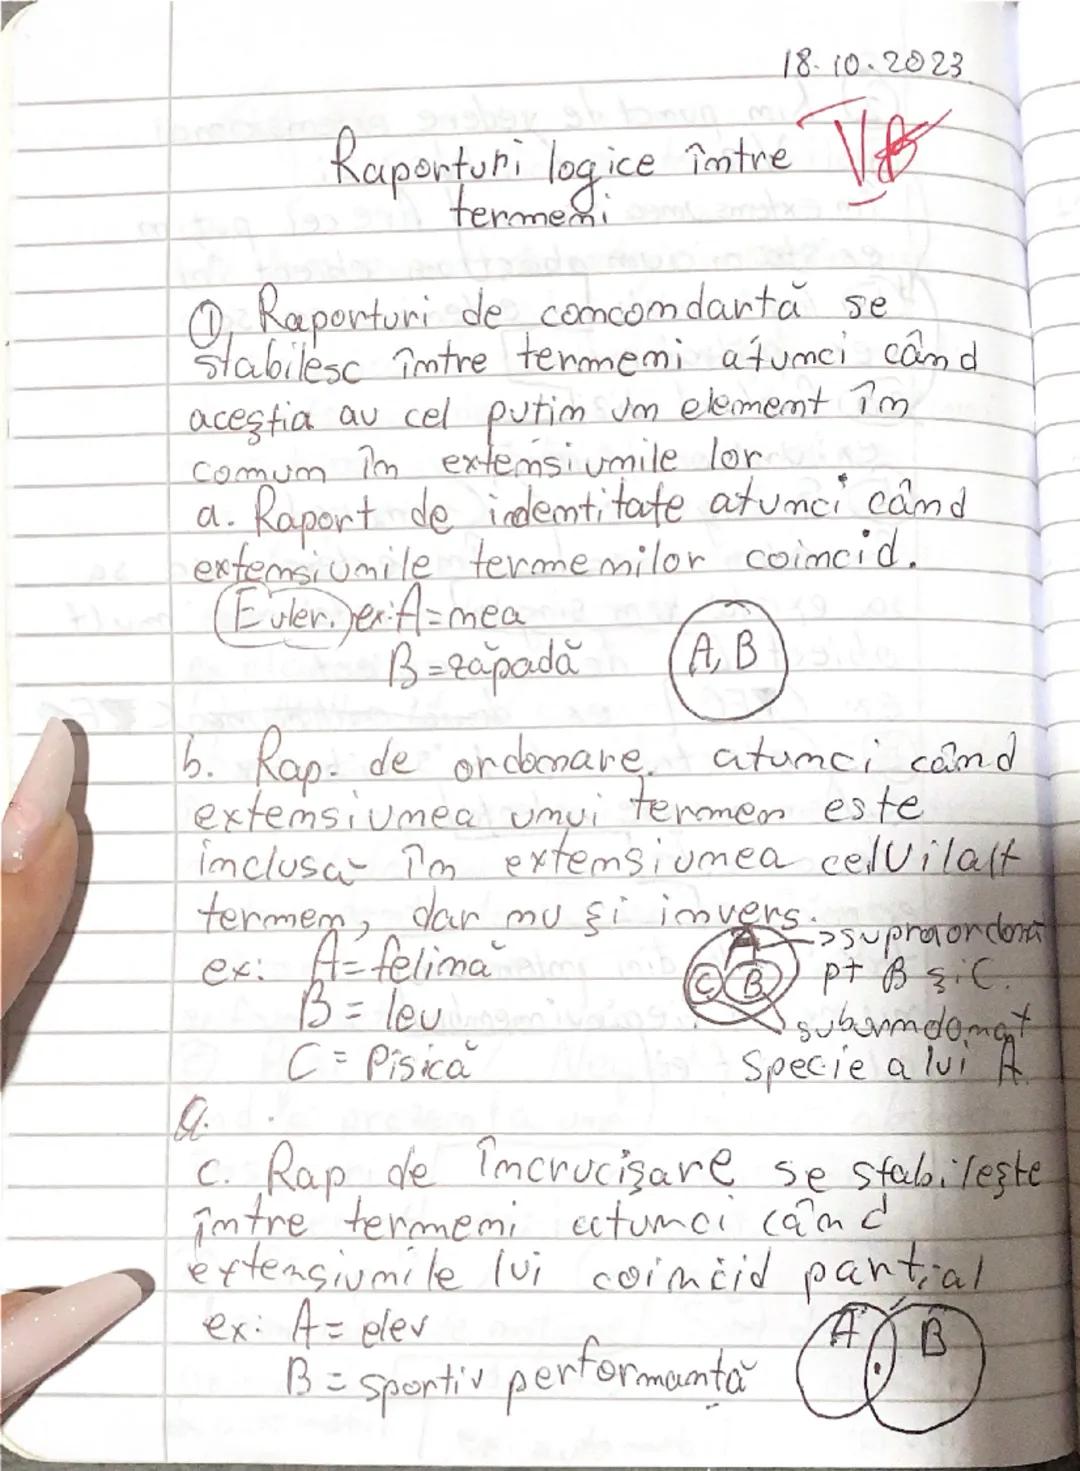 18.10.2023
Raporturi logice între
termeni
VB
①. Raporturi de concondartă se
stabilesc între termeni atunci când
aceștia au cel puțin un element în
comun în extensiunile lor
a. Raport de indentitate atunci când
extensiunile termenilor coincid.
Euler. ex: A = nea
B = zăpadă
A, B
b. Rap. de ordonare. atunci când
extensiunea unui termen este
inclusă în extensiunea celuilalt
termen, dar nu și invers.
ex: A = felină
B = leu
C = Pisică
A
C B
supraordonă
pt B și C.
Specie a lui A
c. Rap de încrucișare se stabilește
între termeni atunci când
extensiunile lui coincid parțial
ex: A = elev
B = sportiv performanță
A B